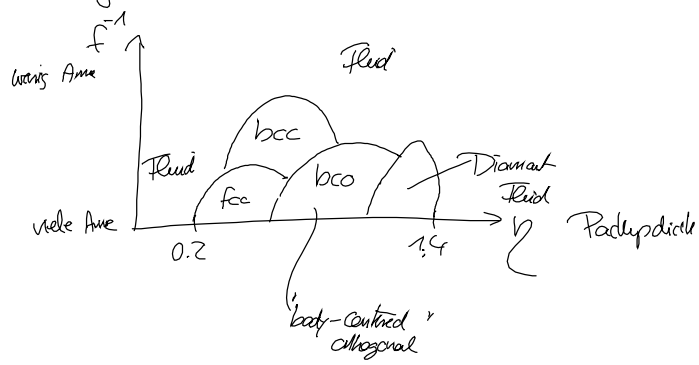 f⁻¹
wenig Arme
Fluid
bcc
Fluid
fcc
bco
Diamant
Fluid
viele Arme
0.2
1.4
η
Packungsdichte
"body-centered
orthogonal"